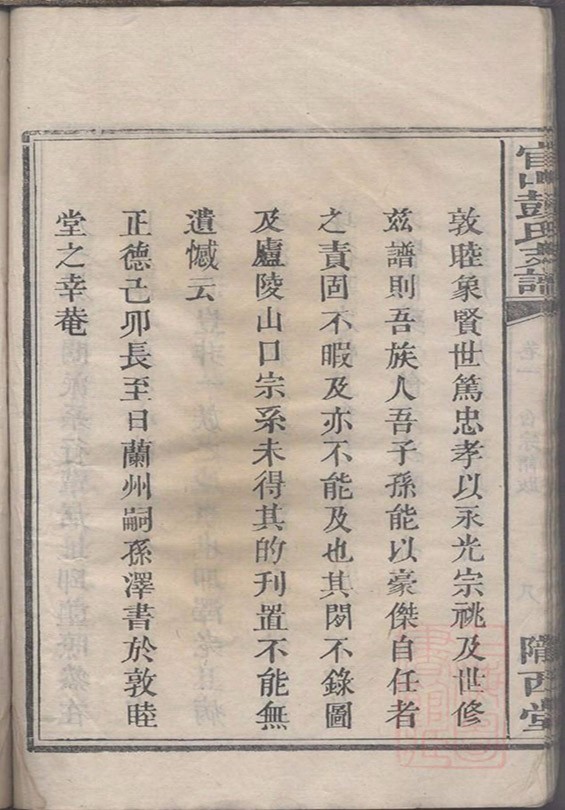 敦睦象賢世篤忠孝以永光宗祧及世修
兹譜則吾族人吾子孫能以豪傑自任者
之責固不暇及亦不能及也其閱不錄圖
及廬陵山口宗系未得其的刊置不能無
遺憾云
正德己卯長至日蘭州嗣孫澤書於敦睦
堂之幸菴
彭氏
隴西堂